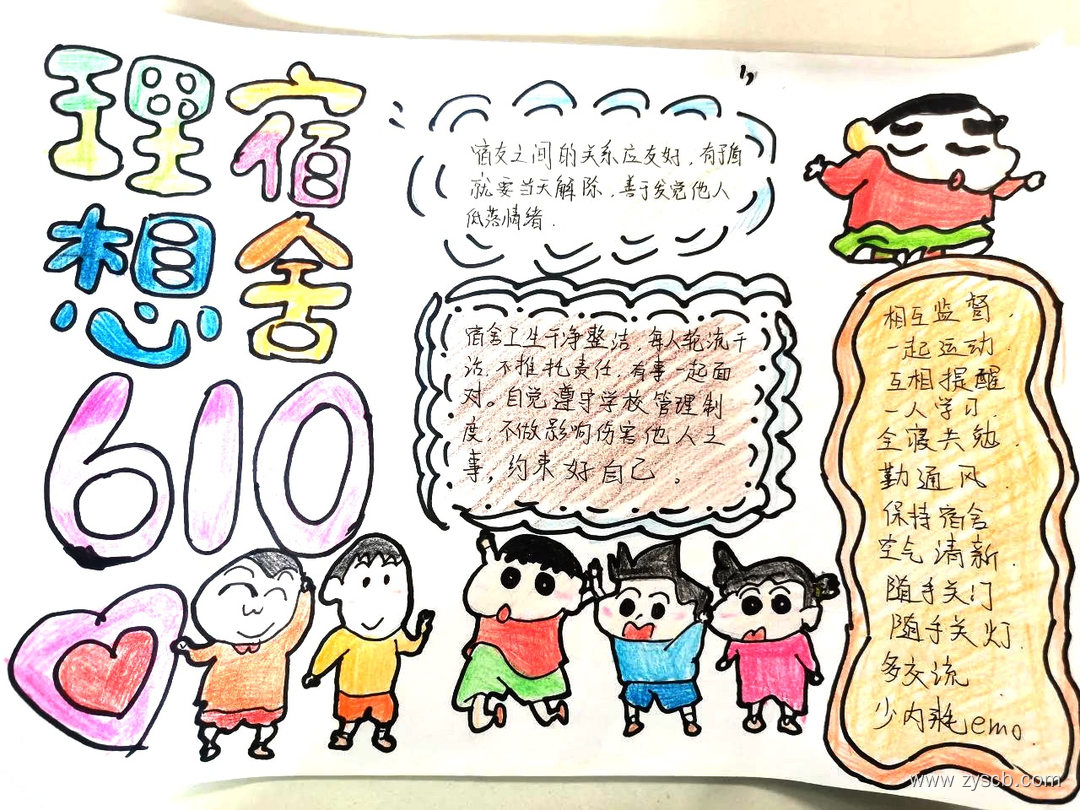 理想
宿舍
610
宿友之间的关系应友好，有矛盾
就要当天解除，善于发觉他人
低落情绪.
宿舍卫生干净整洁，每人轮流干
活，不推托责任，有事一起面
对。自觉遵守学校管理制
度，不做影响伤害他人之
事，约束好自己。
相互监督，
一起运动.
互相提醒
一人学习.
全寝共勉.
勤通风.
保持宿舍
空气清新.
随手关门
随手关灯.
多交流
少内耗emo.
www.zyscb.com